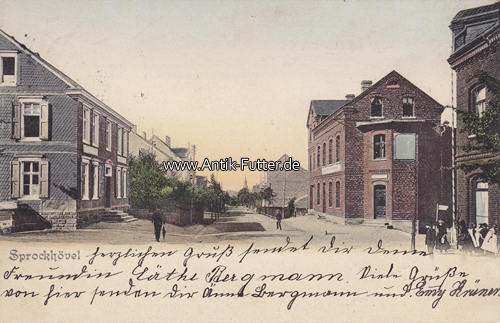 www.Antik-Futter.de
Sprockhövel
herzlichen Gruß sendet dir deine
Freundin Käthe Bergmann. Viele Grüße
von hier senden dir Anna Bergmann und. Emy